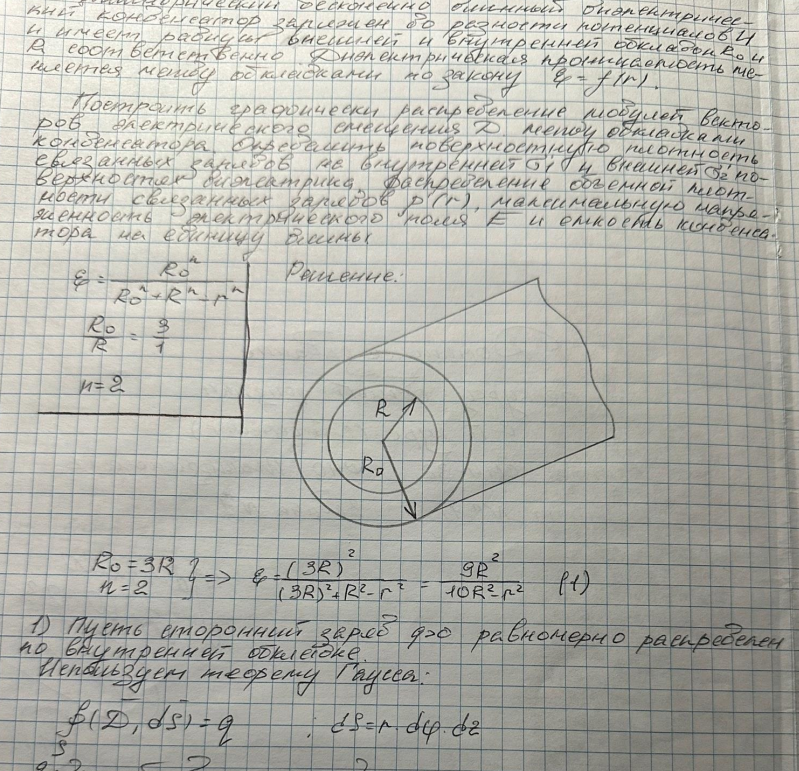 бесконечно длинный диэлектричес-
кий конденсатор заряжен до разности потенциалов U
и имеет радиусы внешней и внутренней обкладок R₀ и
R соответственно. Диэлектрическая проницаемость ме-
няется между обкладками по закону ε = f(r).
Построить графически распределение модулей векто-
ров электрического смещения D между обкладками
конденсатора. Определить поверхностную плотность
связанных зарядов на внутренней σ₁' и внешней σ₂' по-
верхностях диэлектрика, распределение объемной плот-
ности связанных зарядов ρ'(r), максимальную напря-
женность электрического поля E и емкость конденса-
тора на единицу длины
ε = R₀ⁿ / (R₀ⁿ + Rⁿ - rⁿ)
R₀/R = 3/1
n=2
Решение:
R
R₀
R₀ = 3R
n = 2 } => ε = (3R)² / ((3R)² + R² - r²) = 9R² / (10R² - r²) (1)
1) Пусть сторонний заряд q>0 равномерно распределен
по внутренней обкладке.
Используем теорему Гаусса:
∮(D̄, dS̄) = q ; dS = r·dφ·dz
S